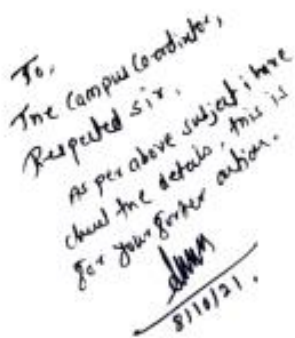 To,
The Campus Coordinator,
Respected sir,
As per above subject i have
the details, this is
for your further action.
8/10/21.